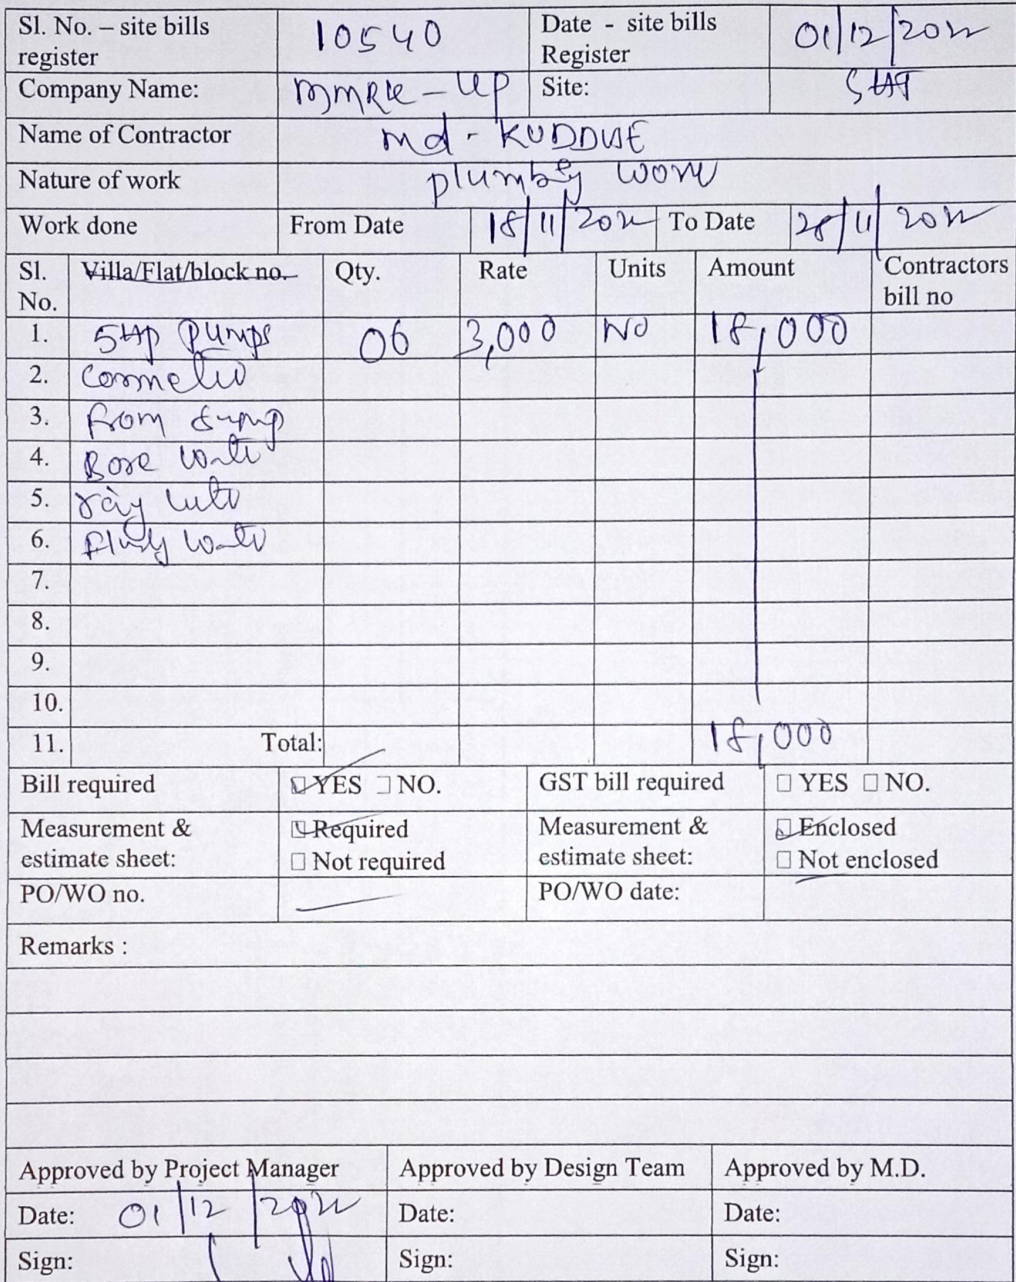 Sl. No. – site bills register 10540 Date - site bills Register 01/12/2022
Company Name: Site:
Name of Contractor Md - KUDDUS
Nature of work plumbing work
Work done From Date 18/11/2022 To Date 28/11/2022
Sl. No. Villa/Flat/block no. Qty. Rate Units Amount Contractors bill no
1. pumps 06 3,000 NO 18,000
2.
3. From
4. Bore
5.
6.
7.
8.
9.
10.
11. Total: 18,000
Bill required YES NO. GST bill required YES NO.
Measurement & estimate sheet: Required Measurement & estimate sheet: Enclosed
Not required Not enclosed
PO/WO no. PO/WO date:
Remarks :
Approved by Project Manager Approved by Design Team Approved by M.D.
Date: 01/12/2022 Date: Date:
Sign: Sign: Sign: